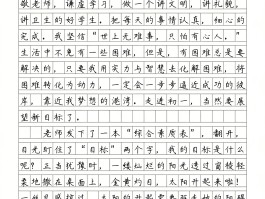 敬老师，谦虚学习，做一个讲文明，讲礼貌，
讲卫生的好学生，把每天的事情认真，细心的
完成，我坚信“世上无难事，只怕有心人。”
生活中不免有一些困难，但是，有困难总是要
解决的，只要我用实力与智慧去化解困难，将
困难转化为动力，一定会一步步逼近成功的彼
岸，靠近我梦想的港湾，走进初一，当然要展
望新目标了。
老师发下了一本“综合素质表”，翻开，
目光盯住了“目标”两个字，我的目标是什么
呢？正当犹豫时，一缕灿烂的阳光透过窗棱轻
柔地撒在桌面上，金黄灼目，太阳升起来啦！